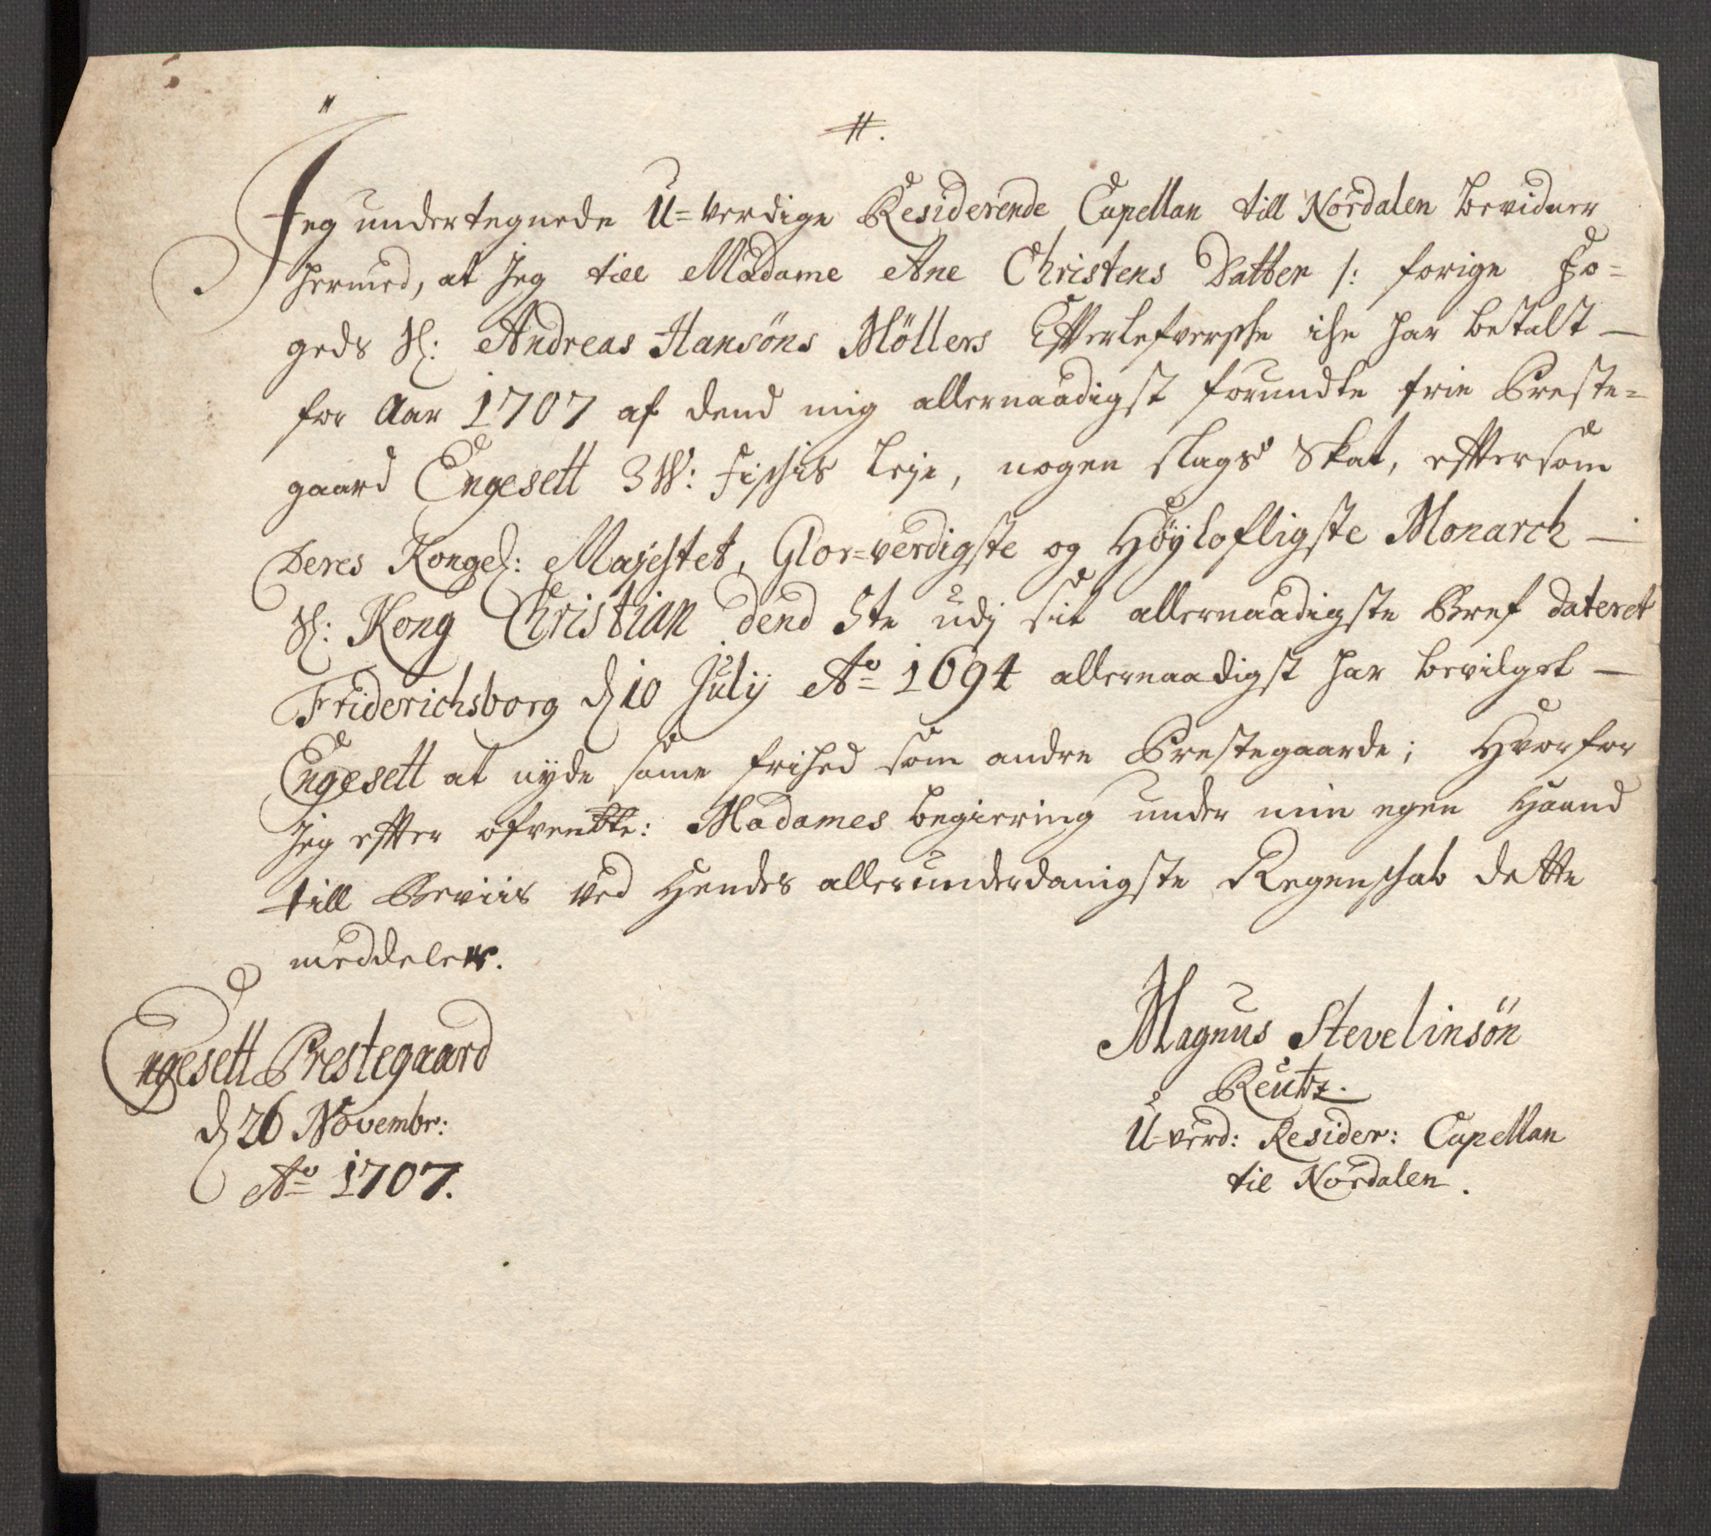 #.
Jeg undertegnede U=verdige Residerende Capellan till Nordalen bevidner
hermed, at Jeg till Madame Ane Christens Datter /: forige Fo=
geds Sl: Andreas Hansöns Möllers Efterlefversche iche har betalt —
for Aar 1707 af dend mig allernaadigst forundte frie Preste=
gaard Engesett 3 W: Fischis leje, nogen slags Skat, eftersom
Deres Kongel: Majestet, Glor=verdigste og Høylofligste Monarch —
Sl: Kong Christian dend 5te udj sit allernaadigste Bref dateret
Friderichsborg d 10 Julij Ao 1694 allernaadigst har bevilget —
Engesett at nyde same frihed som andre Prestegaarde; Hvorfor
Jeg efter ofvenbte: Madames begiering under min egen Haand
till Beviis ved Hendes allerunderdanigste Regenschab dette
meddeler.
Engesett Prestegaard
d 26 Novembr:
Ao 1707.
Magnus Stevelinsön
Reutz.
U=verd: Resider: Capellan
til Nordalen.